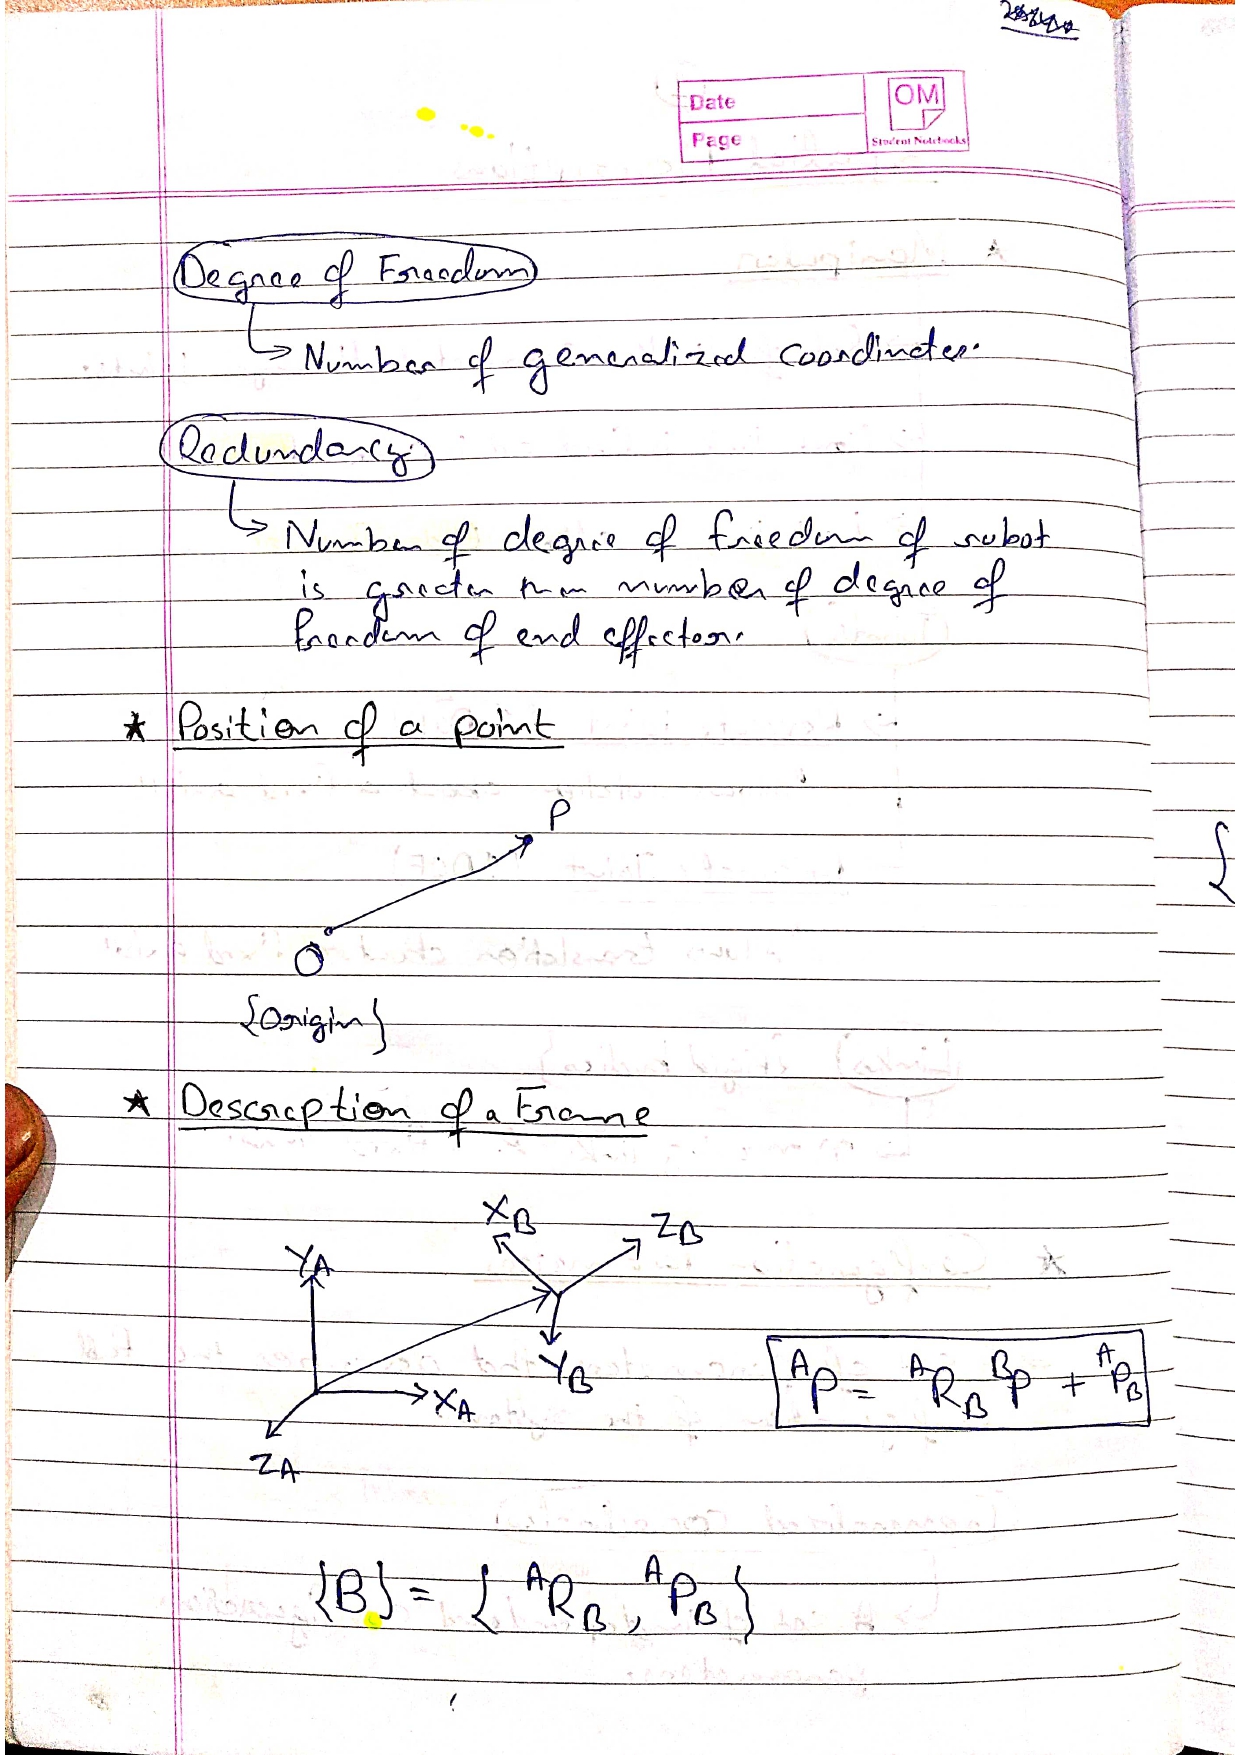 Date
OM
Page
Student Notebooks
Degree of Freedom
Number of generalized coordinates.
Redundancy
Number of degree of freedom of robot
is greater than number of degree of
freedom of end effector.
★ Position of a point
P
O
{Origin}
★ Description of a Frame
X_B Z_B
Y_A
Y_B
X_A
Z_A
ᴬP = ᴬR_B ᴮP + ᴬP_B
{B} = { ᴬR_B, ᴬP_B }